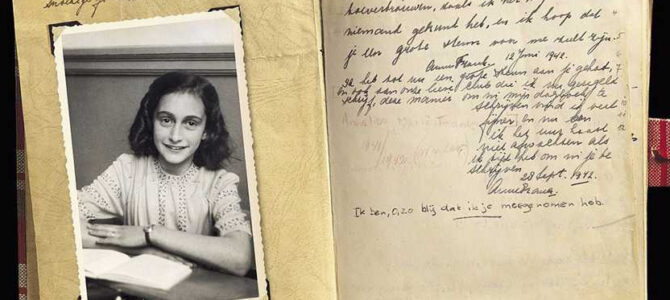 toevertrouwen, zoals ik het n
niemand gekunt heb, en ik hoop dat
je een grote steun voor me zult zijn.
Anne Frank. 12 Juni 1942.
Ik heb tot nu een grote steun aan je gehad,
en ook aan onze lieve club die ik nu geregeld
schrijf, deze manier om in mijn dagboek te
schrijven vind ik veel
fijner en nu kan
ik het uur haast
niet afwachten als
ik tijd heb om in je te
schrijven.
28 Sept. 1942.
Anne Frank.
Ik ben, O, zo blij dat ik je meegenomen heb.